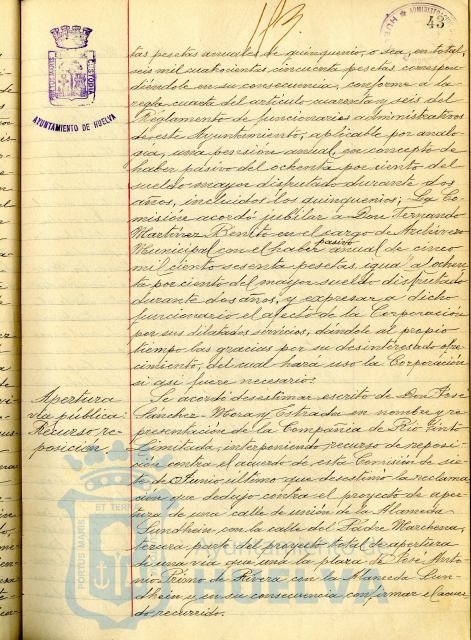 113
ADMINISTRACION
HUEL
43
PORTUS MARIS
CUSTODIA
AYUNTAMIENTO DE HUELVA
tas pesetas anuales de quinquenio, o sea, en total,
seis mil cuatrocientas cincuenta pesetas, correspon-
diéndole en su consecuencia, conforme a la
regla cuarta del artículo cuarenta y seis del
Reglamento de funcionarios administrativos
de este Ayuntamiento, aplicable por analo-
gía, una pensión anual, en concepto de
haber pasivo del ochenta por ciento del
sueldo mayor disfrutado durante dos
años, incluidos los quinquenios; La Co-
misión acordó jubilar a Don Fernando
Martínez Benito en el cargo de Archivero
Municipal con el haber pasivo anual de cinco
mil ciento sesenta pesetas, igual a ochen-
ta por ciento del mayor sueldo disfrutado
durante dos años, y expresar a dicho
funcionario el afecto de la Corporación
por sus dilatados servicios, dándole al propio
tiempo las gracias por su desinteresado ofre-
cimiento, del cual hará uso la Corporación
si así fuere necesario.
Apertura
vía pública:
Recurso re-
posición.
Se acordó desestimar escrito de Don José
Sánchez-Mora y Estrada en nombre y re-
presentación de la Compañía de Río Tinto
Limitada, interponiendo recurso de reposi-
ción contra el acuerdo de esta Comisión de sie-
te de Junio último que desestimó la reclama-
ción que dedujo contra el proyecto de aper-
tura de una calle de unión de la Alameda
Sundheim con la calle del Padre Marchena,
tercera parte del proyecto total de apertura
de una vía que una la plaza de José Anto-
nio Primo de Rivera con la Alameda Sun-
dheim y en su consecuencia confirmar el acuer-
do recurrido.
PORTUS MARIS
ET TERR
Ayuntamiento de
HUELVA